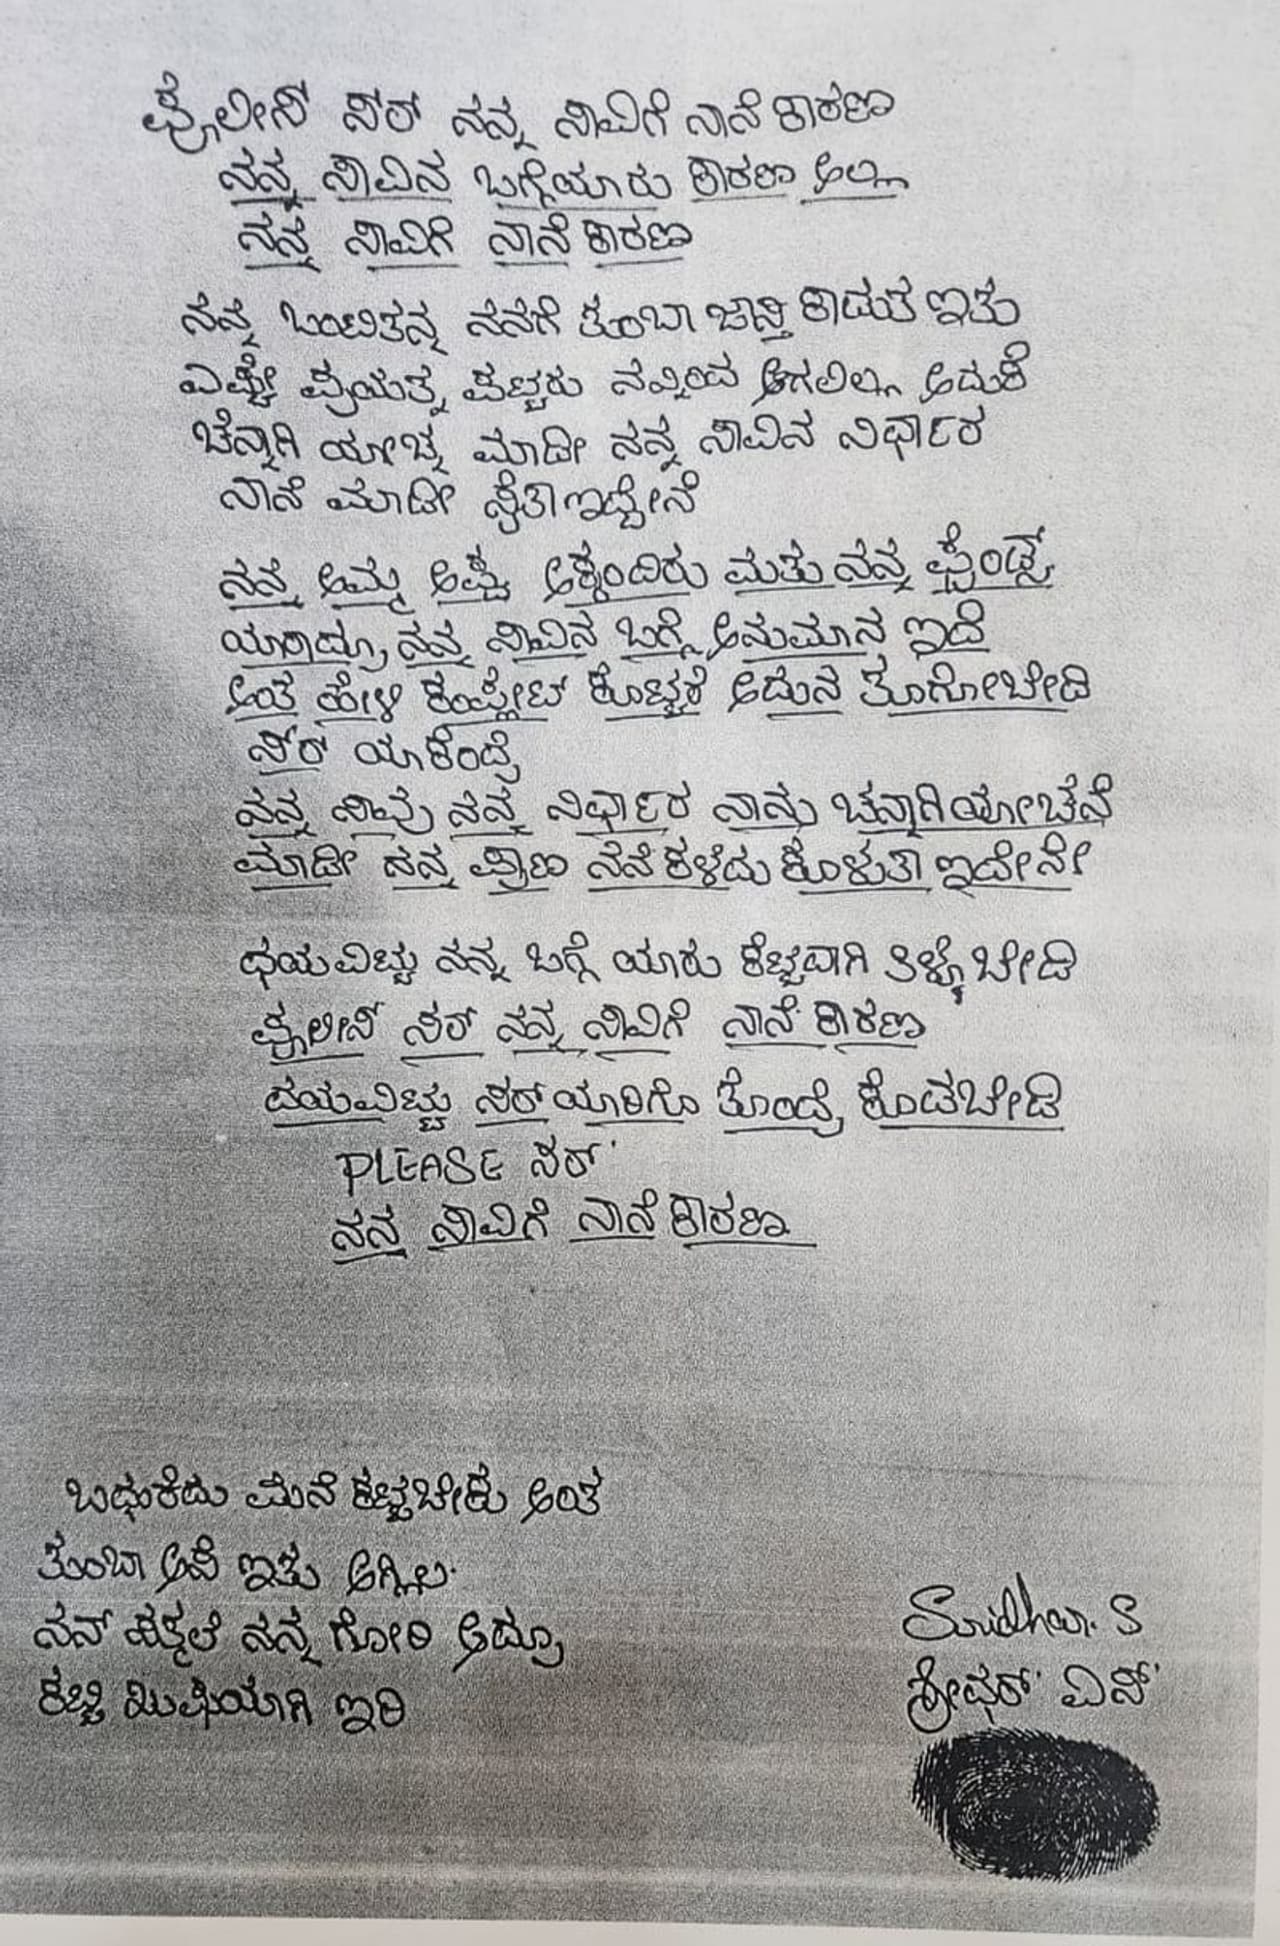 ಪೋಲೀಸ್ ಸರ್ ನನ್ನ ಸಾವಿಗೆ ನಾನೆ ಕಾರಣ
ನನ್ನ ಸಾವಿನ ಬಗ್ಗೆಯಾರು ಕಾರಣ ಅಲ್ಲ
ನನ್ನ ಸಾವಿಗೆ ನಾನೆ ಕಾರಣ
ನನ್ನ ಒಂಟಿತನ್ನ ನನಗೆ ತುಂಬಾ ಜಾಸ್ತಿ ಕಾಡುತ ಇತು
ಎಷ್ಟೇ ಪ್ರಯತ್ನ ಪಟ್ಟರು ನನ್ನಿಂದ ಆಗಲಿಲ್ಲ ಅದುಕೆ
ಚೆನ್ನಾಗಿ ಯೋಚ್ನ ಮಾಡೀ ನನ್ನ ಸಾವಿನ ನಿರ್ಧಾರ
ನಾನೆ ಮಾಡೀ ಸೈತಾಇದ್ದೇನೆ
ನನ್ನ ಅಮ್ಮ ಅಪ್ಪ ಅಕ್ಕಂದಿರು ಮತು ನನ್ನ ಫ್ರೆಂಡ್ಸ್
ಯಾರಾದ್ರು ನನ್ನ ಸಾವಿನ ಬಗ್ಗೆ ಅನುಮಾನ ಇದೆ
ಅಂತ ಹೇಳಿ ಕಂಪ್ಲೇಟ್ ಕೊಟ್ಟರೆ ಅದುನ ತಗೋಬೇಡಿ
ಸರ್ ಯಾಕೆಂದ್ರೆ
ನನ್ನ ಸಾವು ನನ್ನ ನಿರ್ಧಾರ ನಾನು ಚನ್ನಾಗಿಯೋಚನೆ
ಮಾಡೀ ನನ್ನ ಪ್ರಾಣ ನೆನೆ ಕಳೆದು ಕೊಳುತಾ ಇದೇನೇ
ಧಯವಿಟ್ಟು ನನ್ನ ಬಗ್ಗೆ ಯಾರು ಕೆಟ್ಟವಾಗಿ ತಿಳ್ಕೊಬೇಡಿ
ಪೋಲೀಸ್ ಸರ್ ನನ್ನ ಸಾವಿಗೆ ನಾನೆ ಕಾರಣ
ದಯವಿಟ್ಟು ಸರ್ ಯಾರಿಗೊ ತೊಂದ್ರೆ ಕೊಡಬೇಡಿ
PLEASE ಸರ್
ನನ್ನ ಸಾವಿಗೆ ನಾನೆ ಕಾರಣ
ಬಧುಕಿದು ಮನೆ ಕಟ್ಟಬೇಕು ಅಂತ
ತುಂಬಾ ಆಸೆ ಇತು ಆಗ್ಲಿಲ
ನನ್ ಹತ್ಮಲೆ ನನ್ನ ಗೋರಿ ಆದ್ರೂ
ಕಟ್ಟಿ ಖುಷಿಯಾಗಿ ಇರಿ
Sridhar. S
ಶ್ರೀಧರ್ ಎಸ್